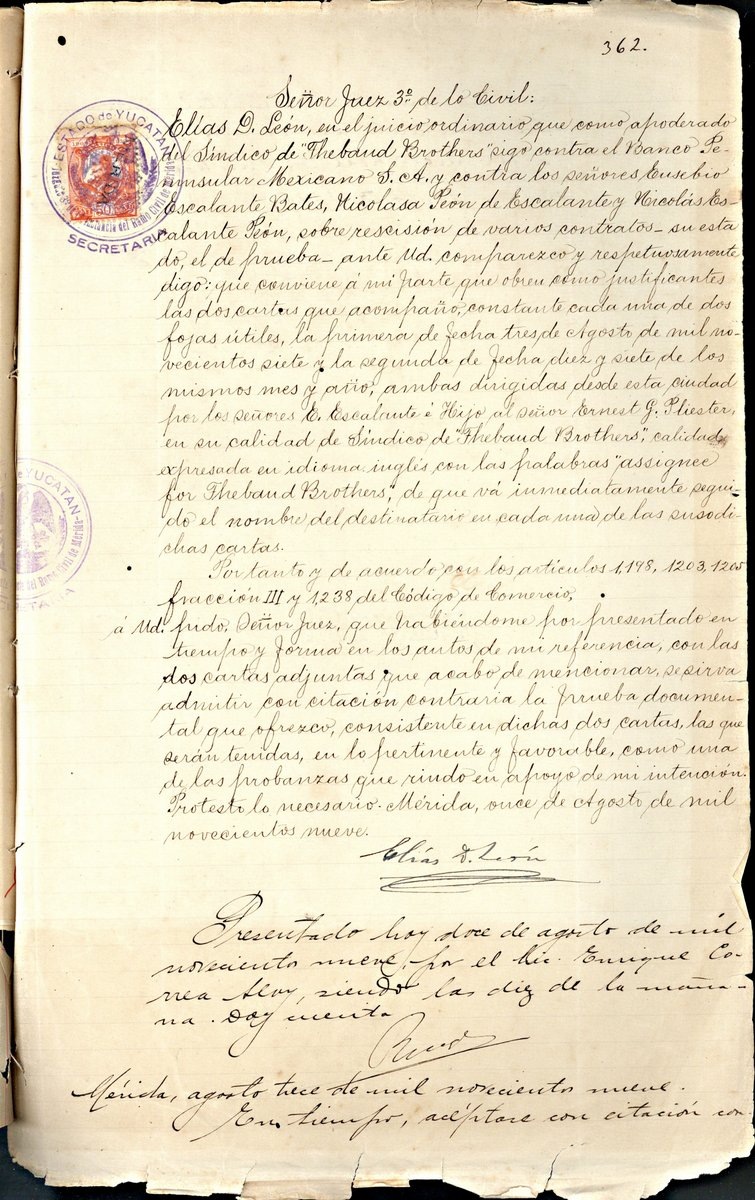 362.
Señor Juez 3º de lo Civil:
Elías D. León, en el juicio ordinario que como apoderado
del Síndico de "Thebaud Brothers" sigo contra el Banco Pe-
ninsular Mexicano S. A. y contra los señores Eusebio
Escalante Bates, Nicolasa Peón de Escalante y Nicolás Es-
calante Peón, sobre rescisión de varios contratos - su esta
do, el de prueba - ante Ud. comparezco y respetuosamente
digo: que conviene á mi parte que obren como justificantes
las dos cartas que acompaño, constante cada una de dos
fojas útiles, la primera de fecha tres de Agosto de mil no-
vecientos siete y la segunda de fecha diez y siete de los
mismos mes y año, ambas dirigidas desde esta ciudad
por los señores E. Escalante é Hijo al señor Ernest G. Pliester,
en su calidad de Síndico de "Thebaud Brothers", calidad
expresada en idioma inglés con las palabras "assignee
for Thebaud Brothers", de que vá inmediatamente segui-
do el nombre del destinatario en cada una de las susodi-
chas cartas.
Por tanto y de acuerdo con los artículos 1,198, 1203, 1205
fracción III y 1,238 del Código de Comercio,
á Ud. pido, Señor Juez, que habiéndome por presentado en
tiempo y forma en los autos de mi referencia, con las
dos cartas adjuntas que acabo de mencionar, se sirva
admitir con citación contraria la prueba documen-
tal que ofrezco, consistente en dichas dos cartas, las que
serán tenidas, en lo pertinente y favorable, como una
de las probanzas que rindo en apoyo de mi intención.
Protesto lo necesario. Mérida, once de Agosto de mil
novecientos nueve.
Elías D. León
Presentado hoy doce de agosto de mil
novecientos nueve, por el Lic. Enrique Co-
rrea siendo las diez de la maña-
na. Doy cuenta
Mérida, agosto trece de mil novecientos nueve.
En tiempo, acéptase con citación con
ESTADO de YUCATAN
SECRETARIA
de YUCATAN
del Ramo Civil de Mérida